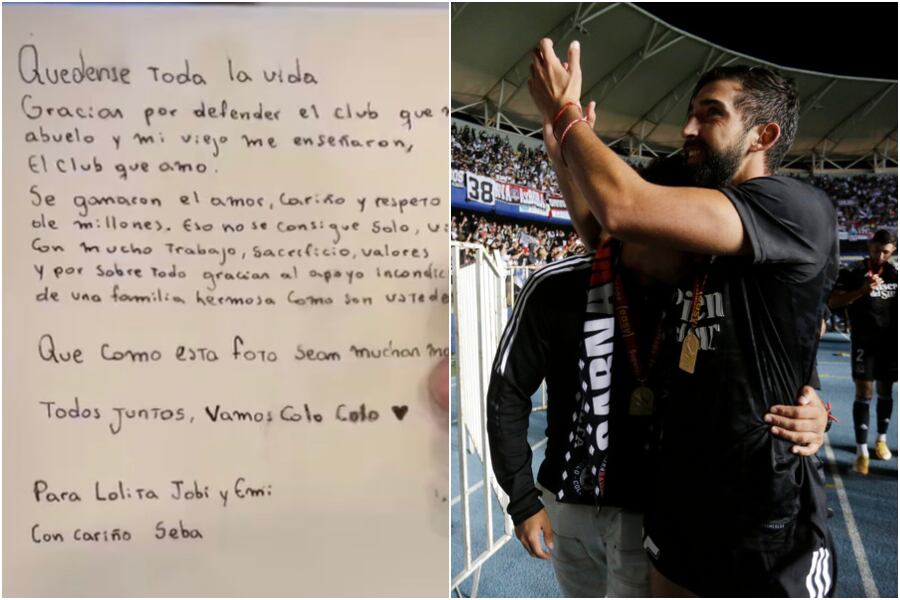 Quedense toda la vida
Gracias por defender el club que
abuelo y mi viejo me enseñaron,
El club que amo.
Se ganaron el amor, cariño y respeto
de millones. Eso no se consigue solo,
Con mucho trabajo, sacrificio, valores
y por sobre todo gracias al apoyo incondic
de una familia hermosa como son ustede
Que como esta foto sean muchas
Todos juntos, Vamos Colo Colo ♥
Para Lolita Jobi y Emi
Con cariño Seba
38
2